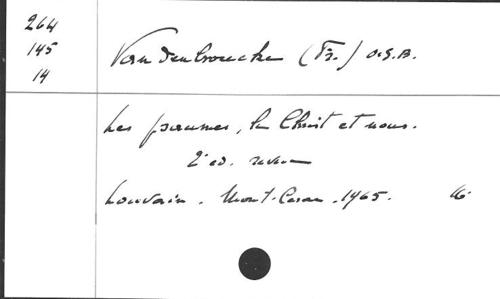 264
145
14
Vandenbroucke (Fr.) O.S.B.
Les psaumes, le Christ et nous.
2e ed. revue
Louvain. Mont-César. 1965.